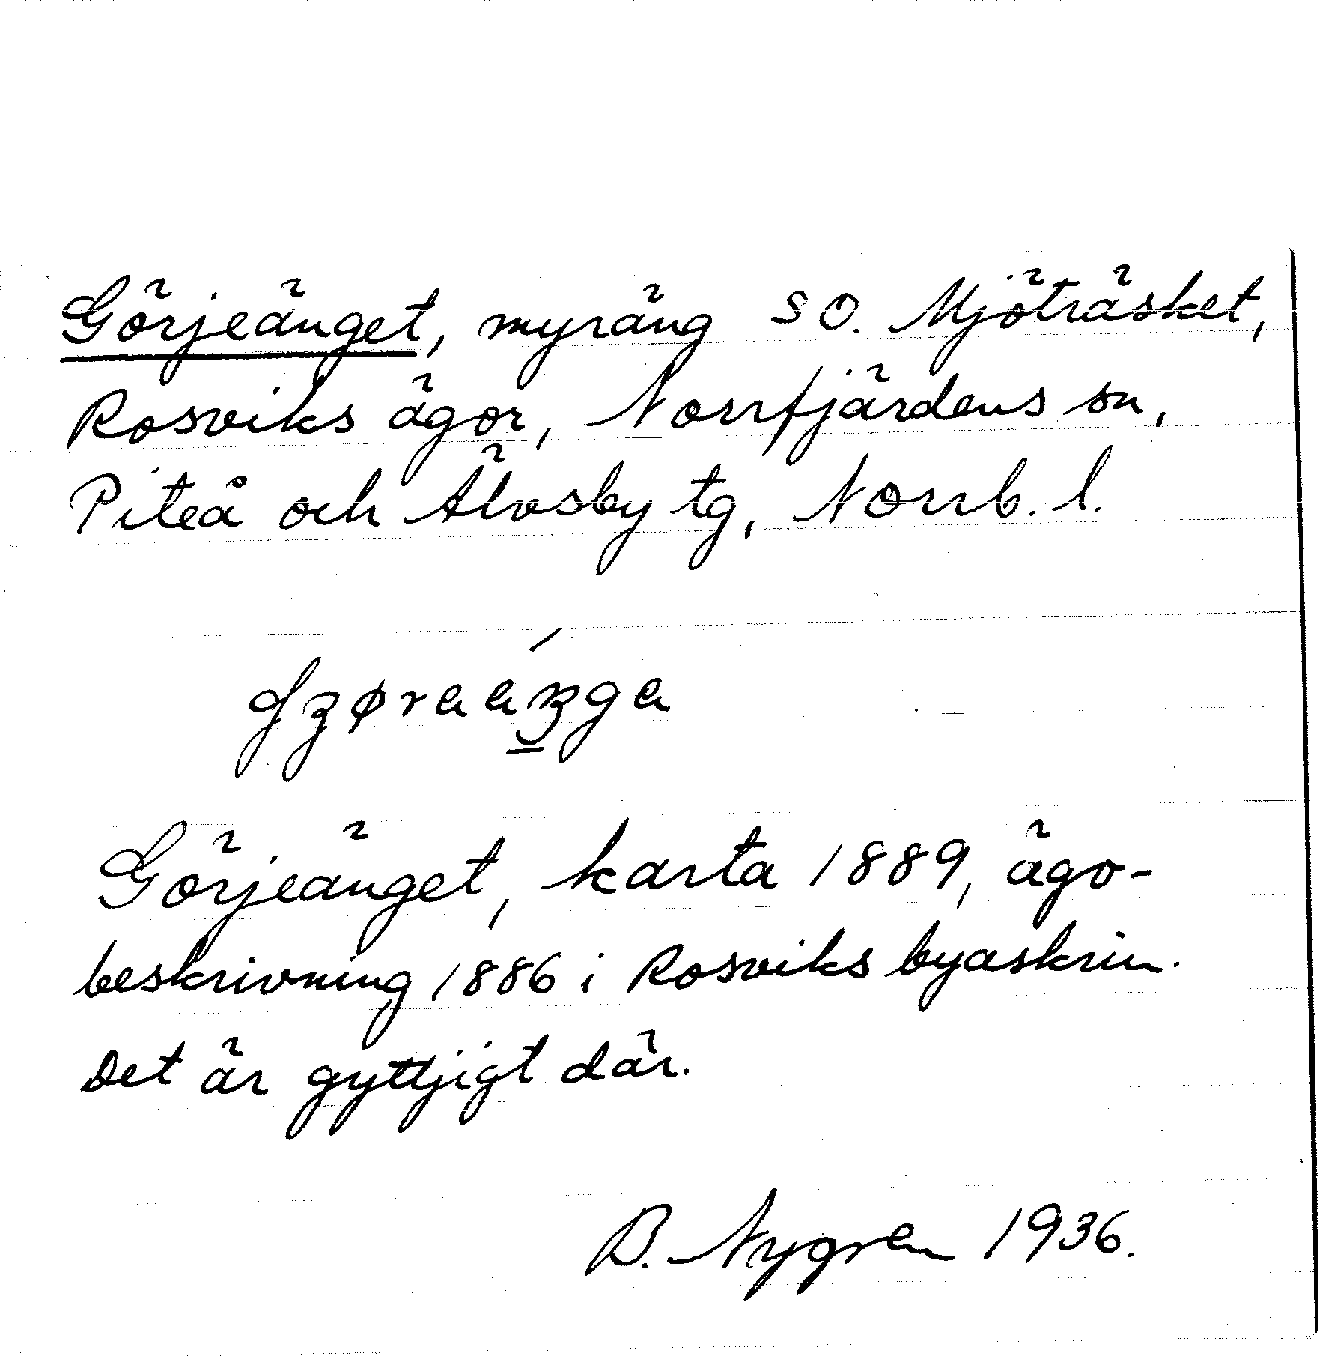 Görjeänget, myräng SO. Mjöträsket,
Rosviks ägor, Norrfjärdens sn,
Piteå och Älvsby tg, Norrb. l.
Görjeänget, karta 1889, ägo-
beskrivning 1886 i Rosviks byaskrin.
Det är gyttjigt där.
B. Nygren 1936.